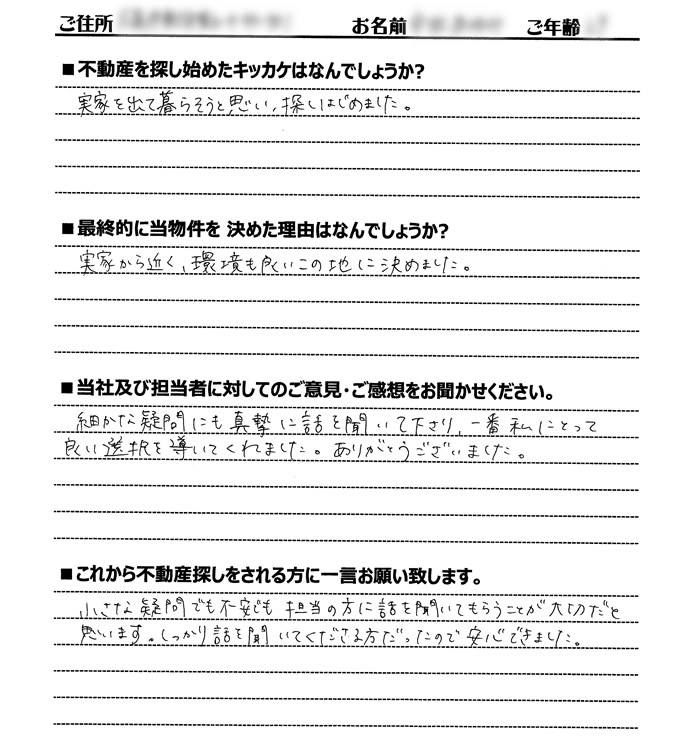 ご住所 お名前 ご年齢
■不動産を探し始めたキッカケはなんでしょうか?
実家を出て暮らそうと思い、探しはじめました。
■最終的に当物件を 決めた理由はなんでしょうか?
実家から近く、環境も良いこの地に決めました。
■当社及び担当者に対してのご意見・ご感想をお聞かせください。
細かな疑問にも真摯に話を聞いて下さり、一番私にとって
良い選択を導いてくれました。ありがとうございました。
■これから不動産探しをされる方に一言お願い致します。
小さな疑問でも不安でも担当の方に話を聞いてもらうことが大切だと
思います。しっかり話を聞いてくださる方だったので安心できました。